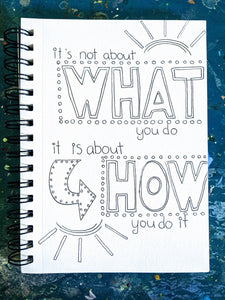 it's not about
WHAT
you do
it is about
HOW
you do it